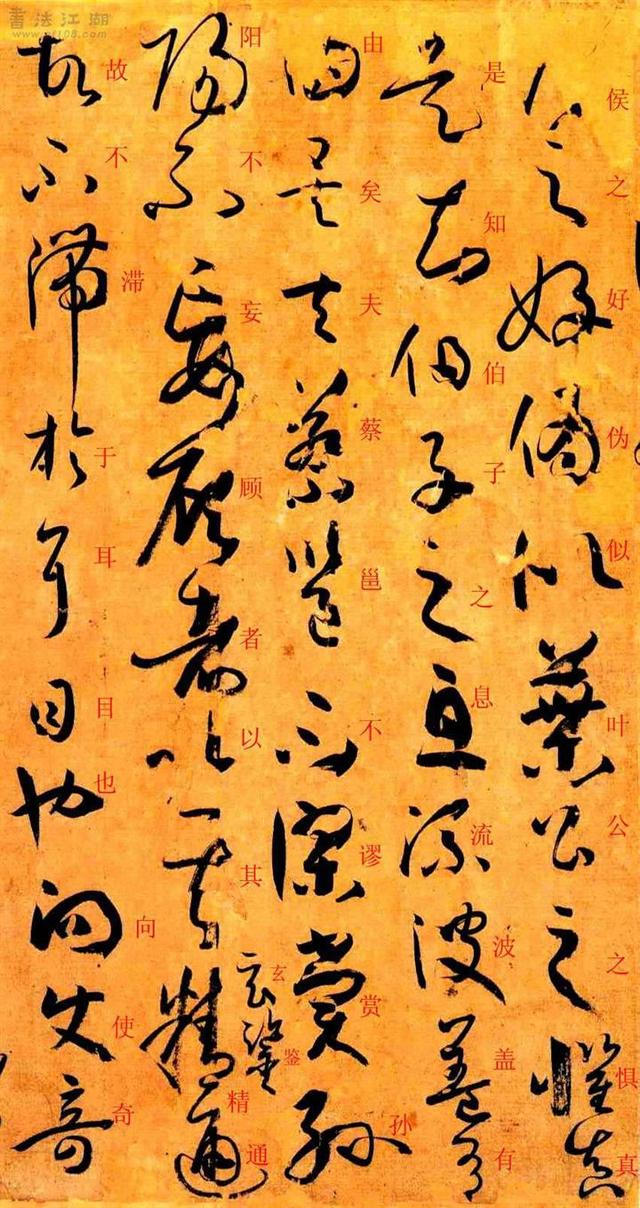 書法江湖
www.sf108.com
侯之好伪似叶公之惧真
是知伯子之息流波盖有
由矣夫蔡邕不谬赏孙
阳不妄顾者以其玄鉴精通
故不滞于耳目也向使奇